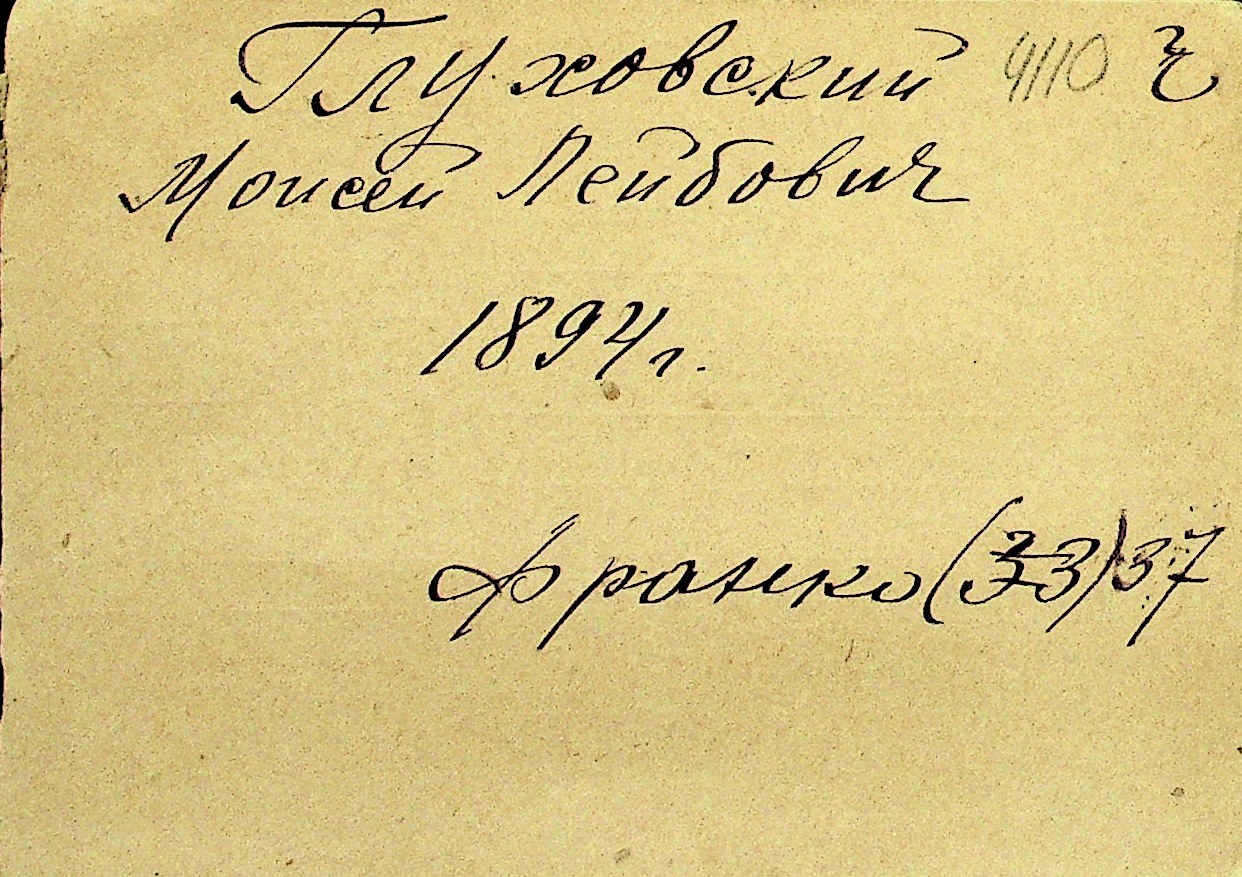 Глуховский 4110
Моисей Лейбович
1894г.
Франко (33) 37